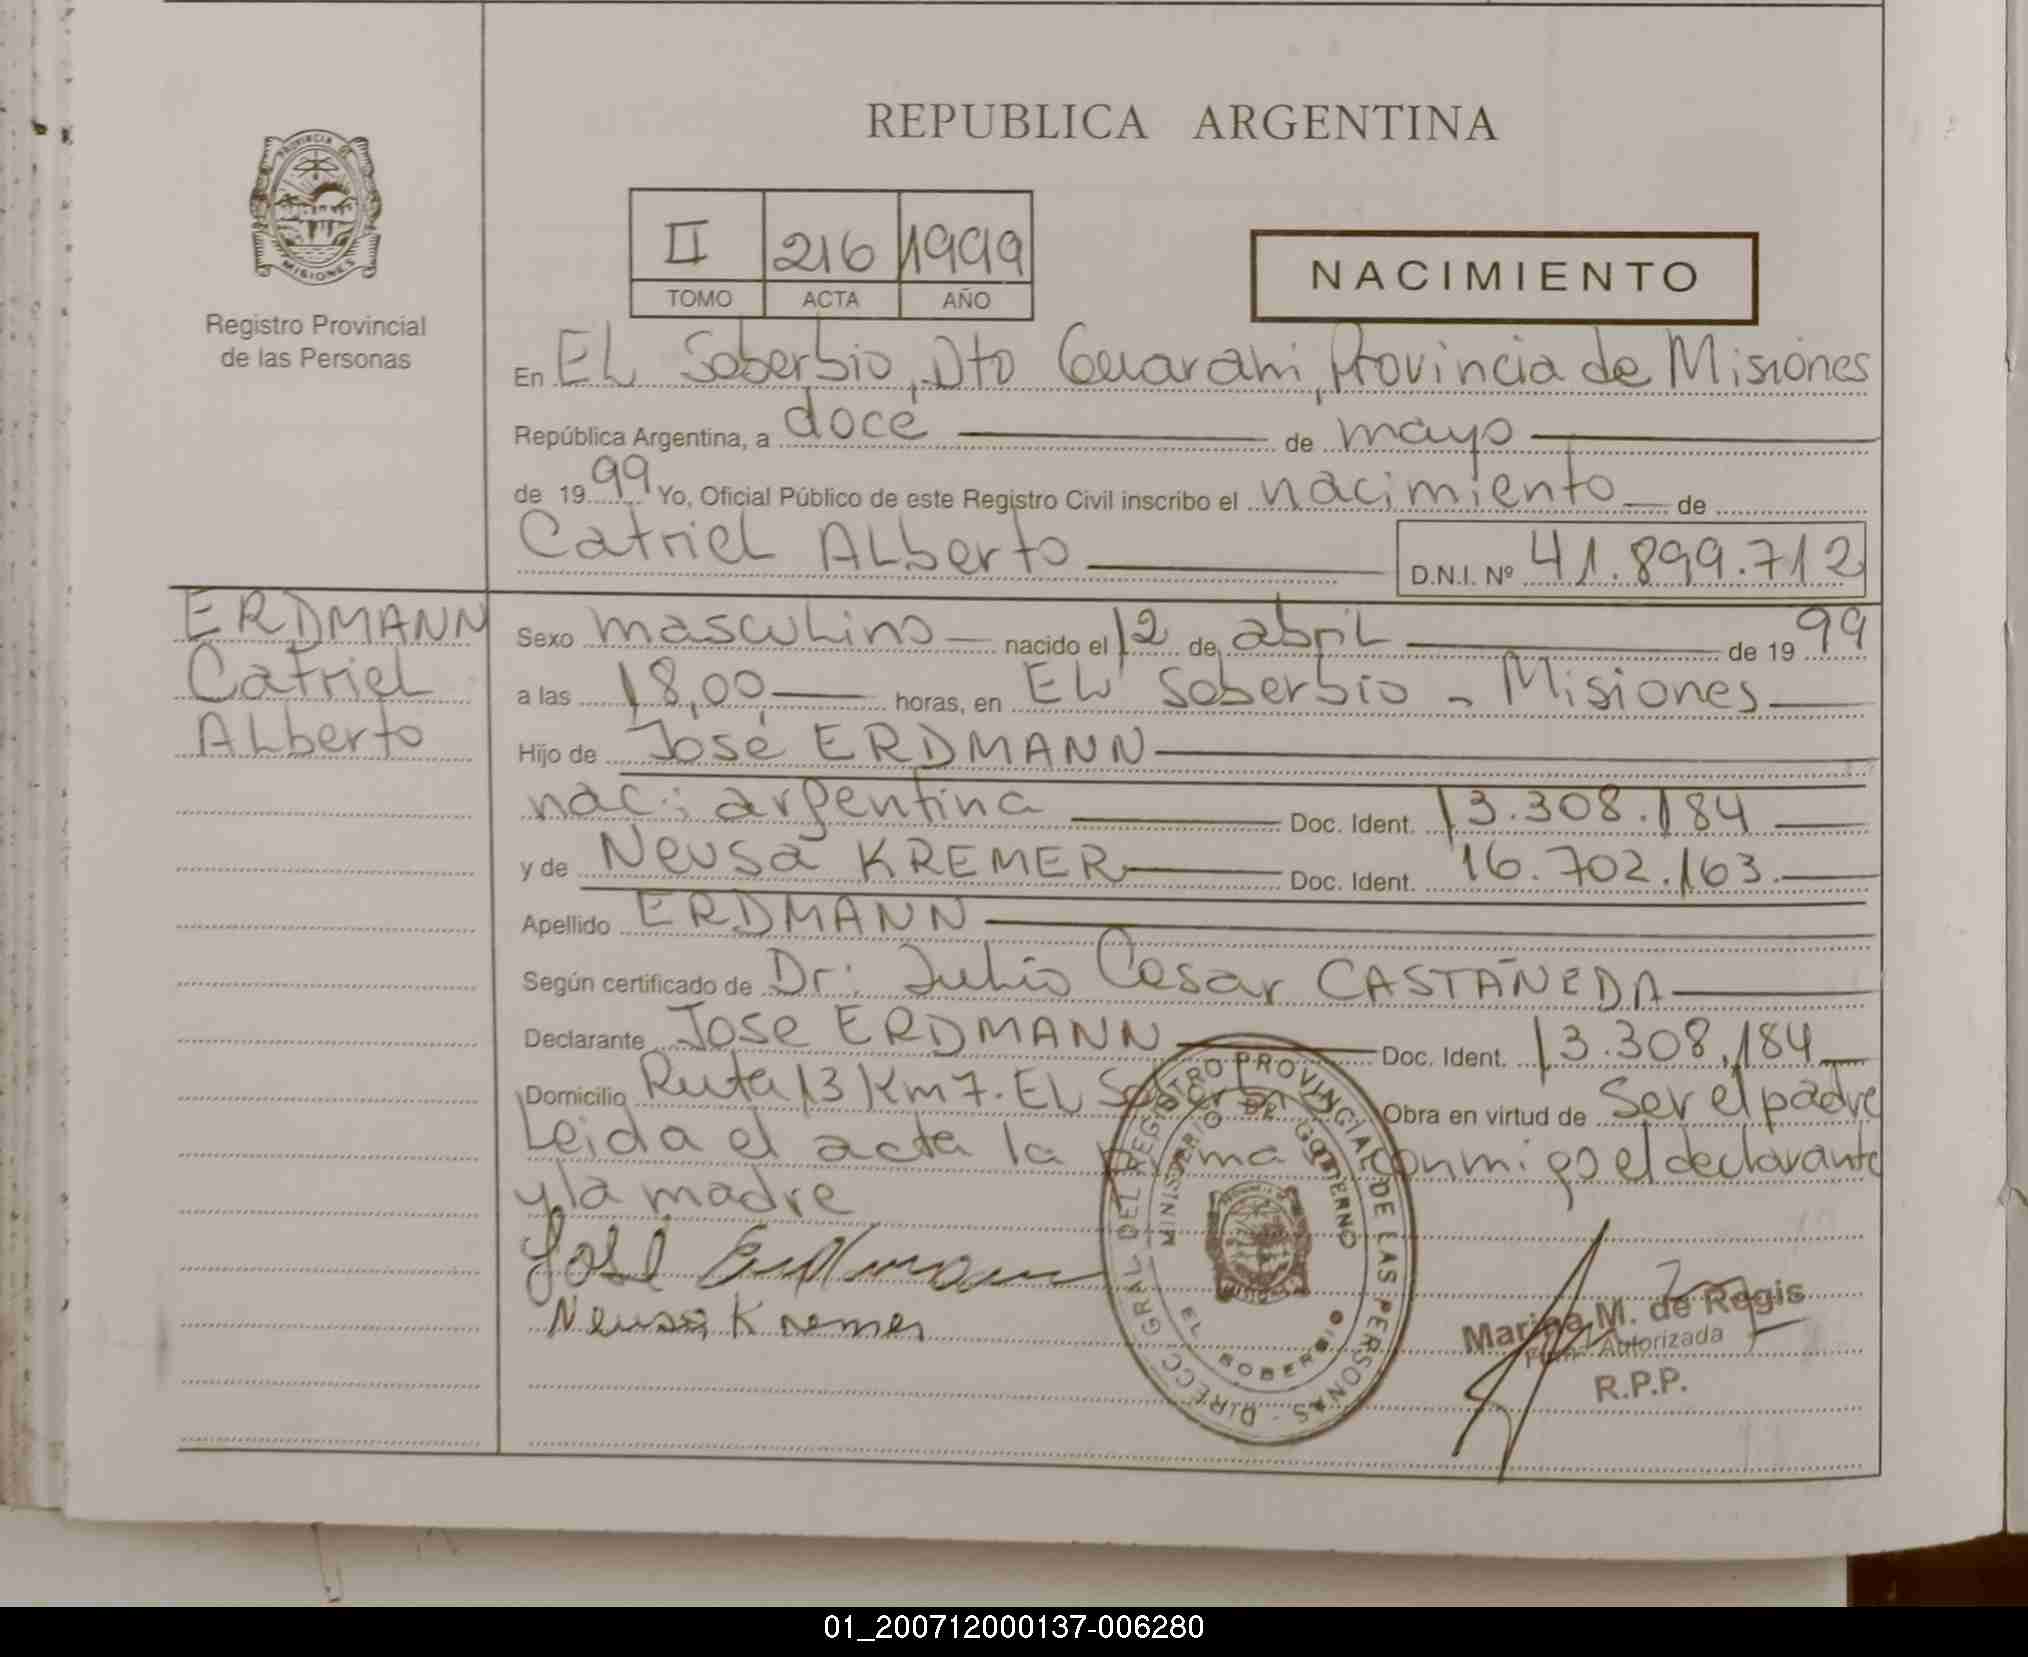 REPUBLICA ARGENTINA
PROVINCIA DE
MISIONES
Registro Provincial
de las Personas
II 216 1999
TOMO ACTA AÑO
NACIMIENTO
En EL Soberbio, Dto Guarani, Provincia de Misiones
República Argentina, a doce de mayo
de 1999 Yo, Oficial Público de este Registro Civil inscribo el nacimiento de
Catriel ALberto D.N.I. Nº 41.899.712
ERDMANN
Catriel
ALberto
Sexo mascuLino nacido el 12 de abriL de 1999
a las 18,00 horas, en EL Soberbio - Misiones
Hijo de José ERDMANN
nac: argentina Doc. Ident. 13.308.184
y de Neusa KREMER Doc. Ident. 16.702.163.
Apellido ERDMANN
Según certificado de Dr: Julio Cesar CASTAÑEDA
Declarante Jose ERDMANN Doc. Ident. 13.308.184
Domicilio Ruta 13 Km 7. EL Soberbio Obra en virtud de Ser el padre
Leida el acta la firma conmigo el declarante
y la madre
José Erdmann
Neusa Kremer
DIRECC. GRAL. DEL REGISTRO PROVINCIAL DE LAS PERSONAS
MINISTERIO DE GOBIERNO
EL SOBERBIO
Marina M. de Regis
Autorizada
R.P.P.
01_200712000137-006280